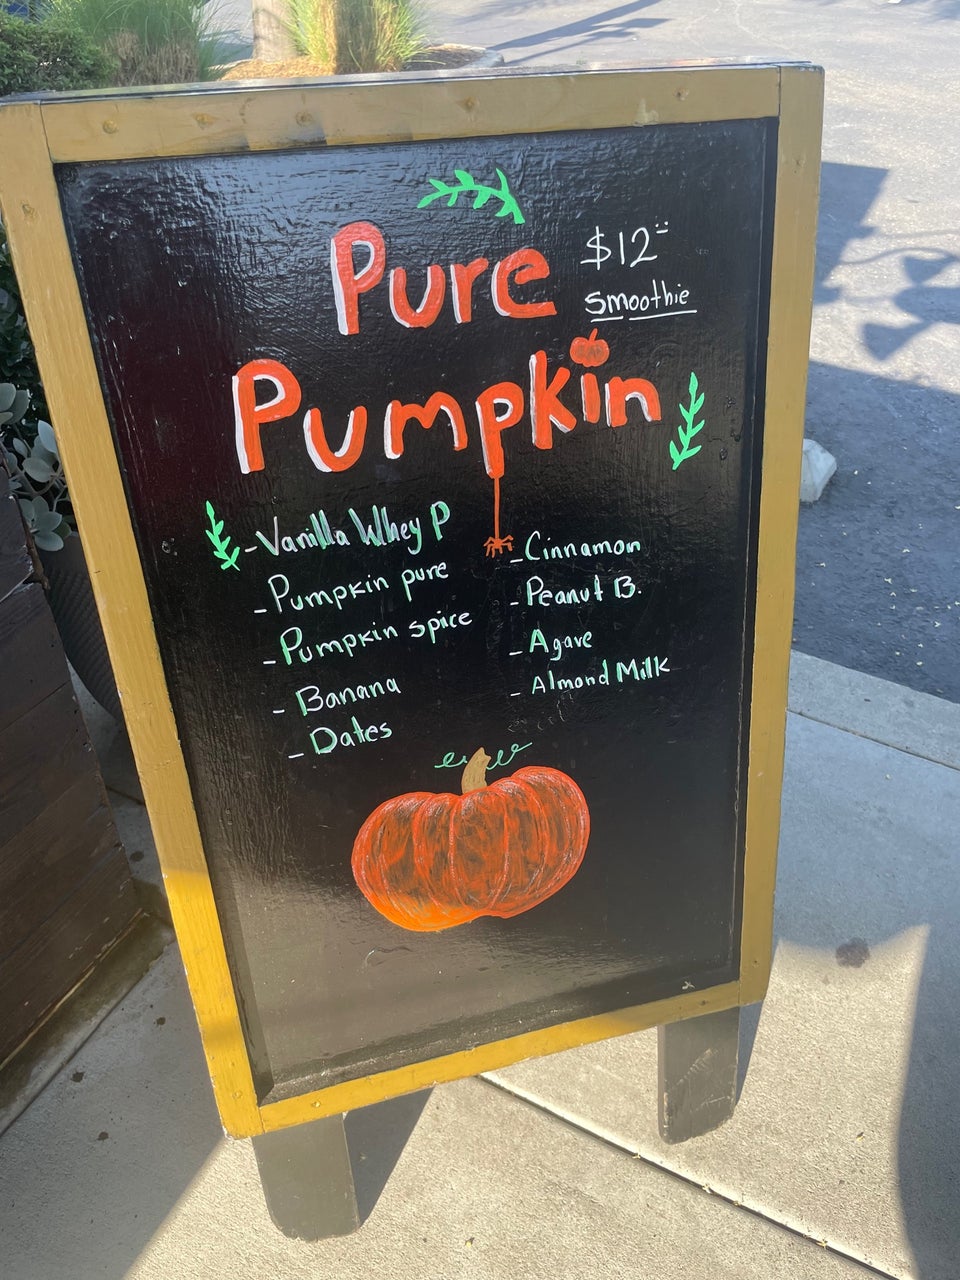 Pure
$12
Smoothie
Pumpkin
- Vanilla Whey P
- Pumpkin pure
- Pumpkin spice
- Banana
- Dates
- Cinnamon
- Peanut B.
- Agave
- Almond Milk